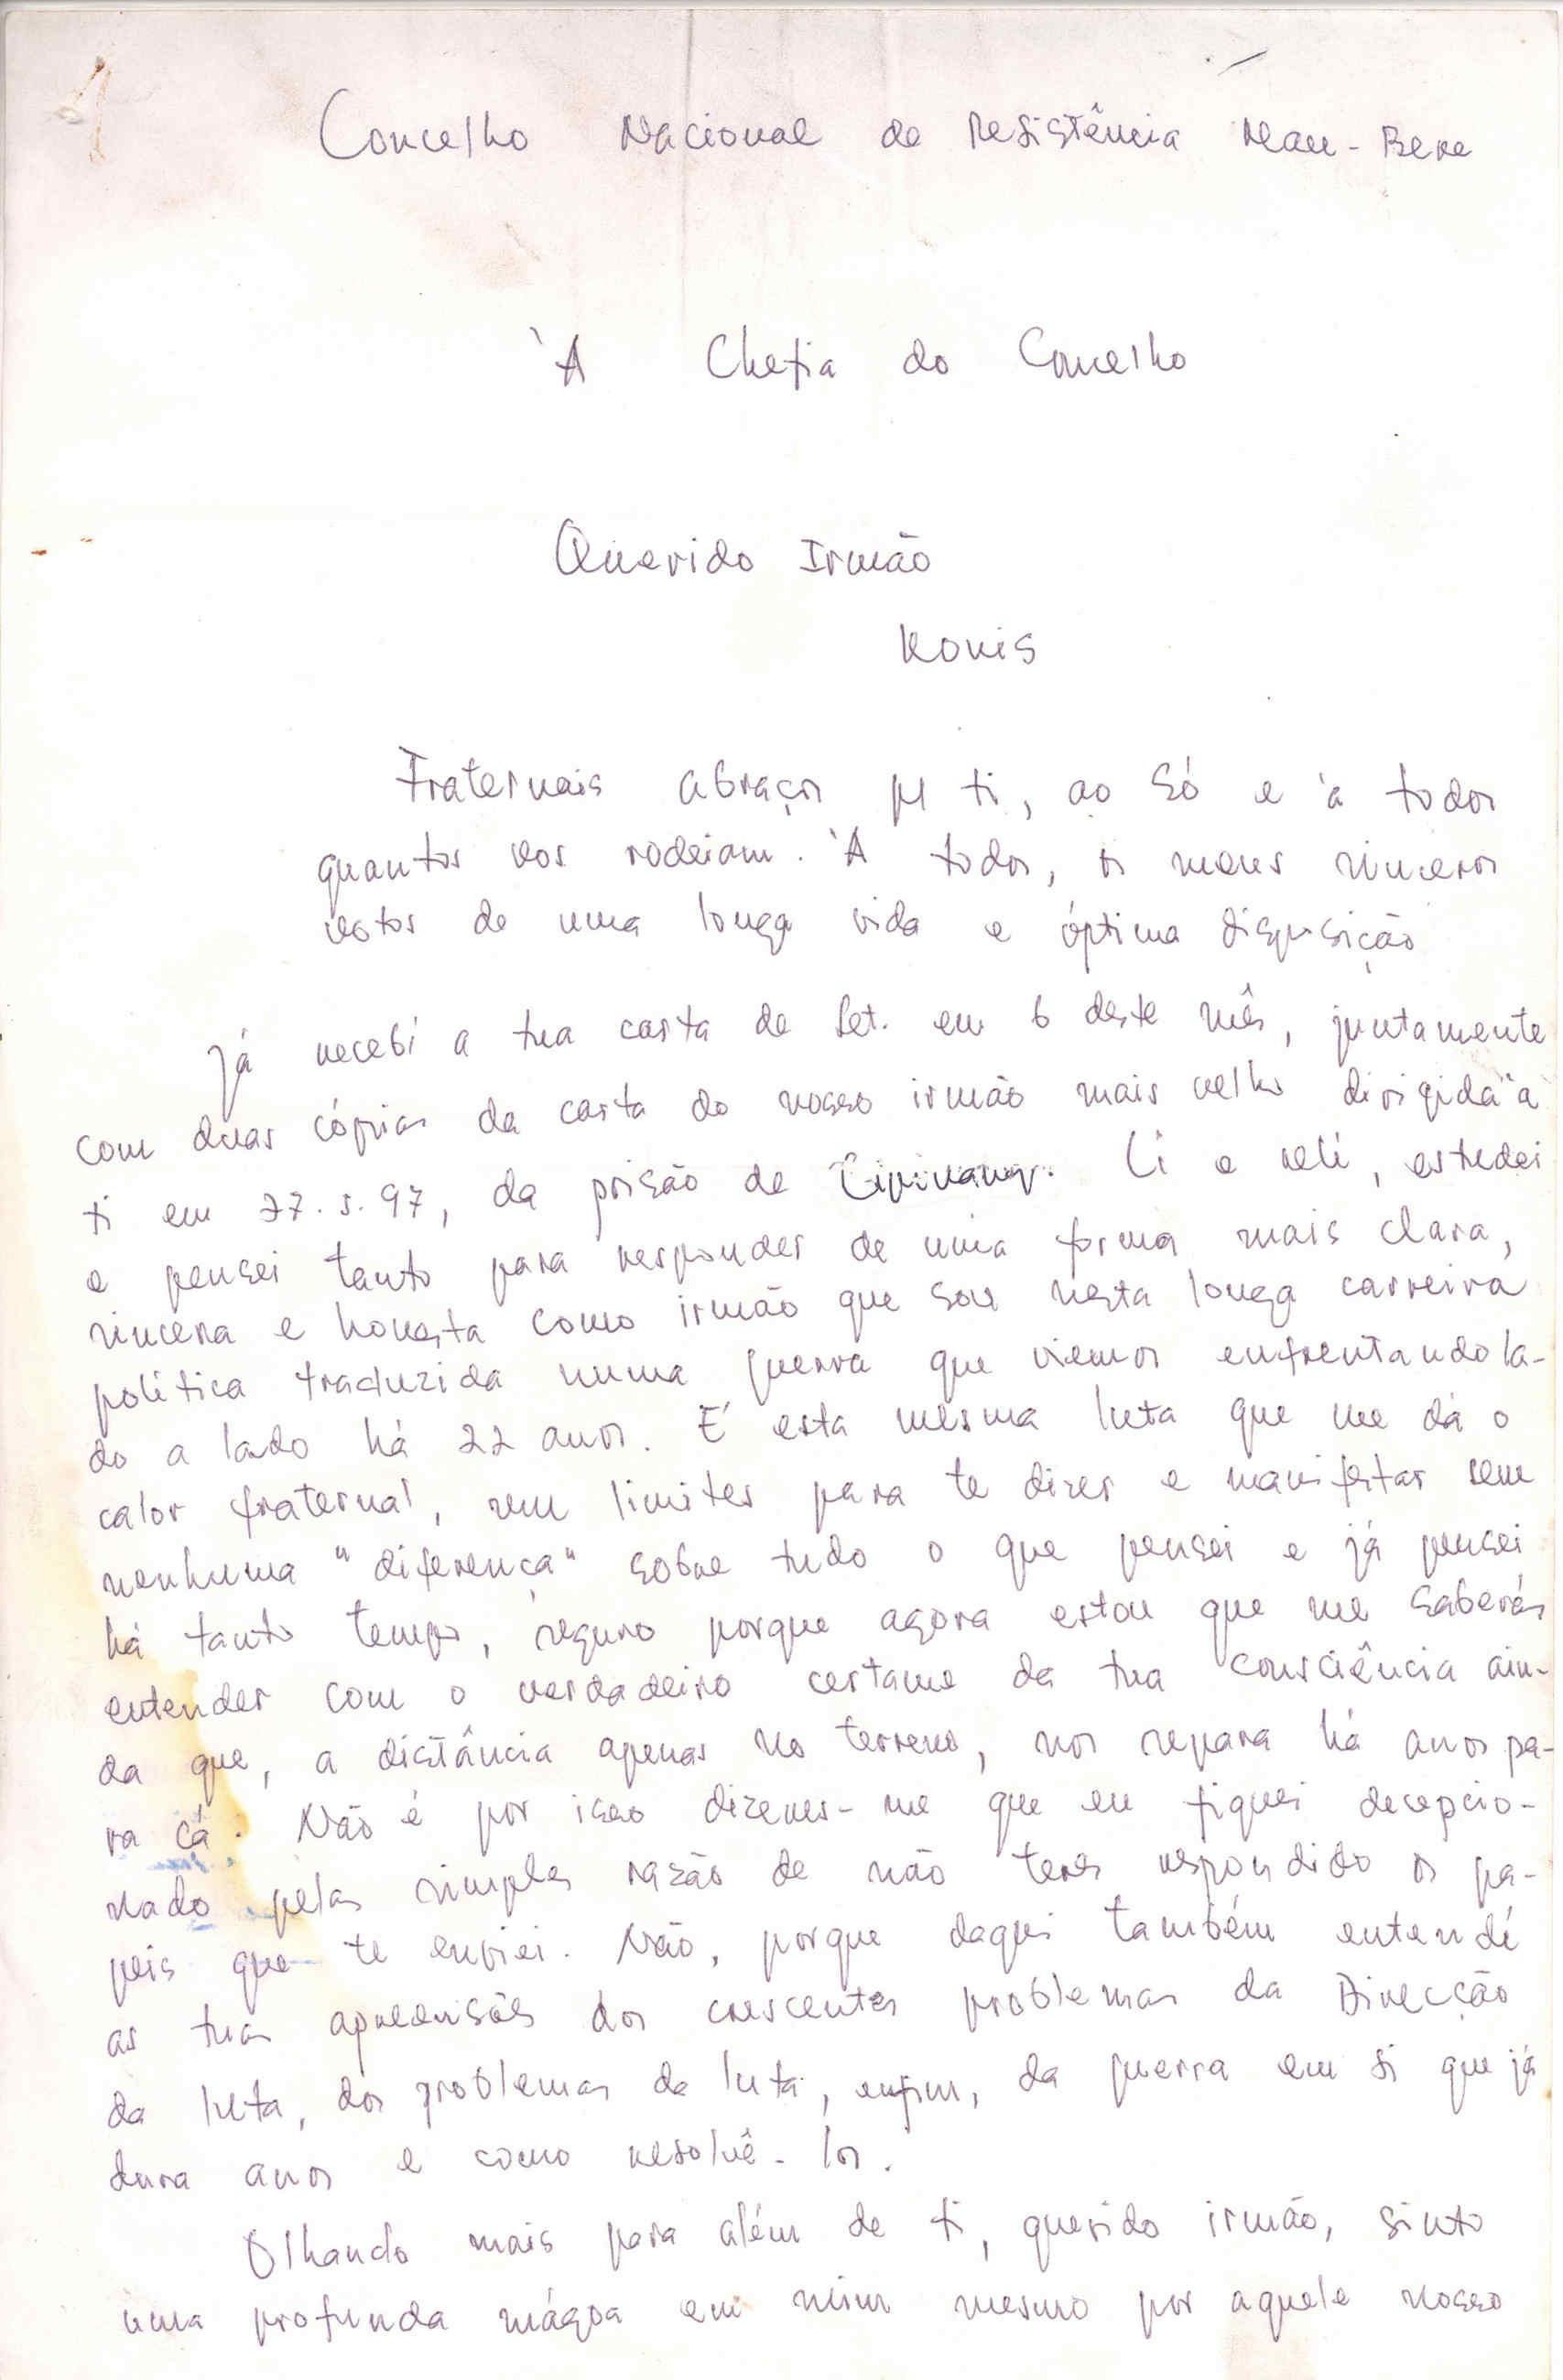 Concelho Nacional de Resistência Mau-Bere
À Chefia do Concelho
Querido Irmão
Konis
Fraternais abraços p/ ti, ao Só e à todos
quantos vos rodeiam. À todos, os meus sinceros
votos de uma longa vida e óptima disposição
Já recebi a tua carta de Set. em 6 deste mês, juntamente
com duas cópias da carta do nosso irmão mais velho dirigida à
ti em 27.5.97, da prisão de Cipinang. Li e reli, estudei
e pensei tanto para responder de uma forma mais clara,
sincera e honesta como irmão que sou nesta longa carreira
política traduzida numa guerra que viemos enfrentando la-
do a lado há 22 anos. É esta mesma luta que me dá o
calor fraternal, sem limites para te dizer e manifestar sem
nenhuma "diferença" sobre tudo o que pensei e já pensei
há tanto tempo, seguro porque agora estou que me saberás
entender com o verdadeiro certame da tua consciência ain-
da que, a distância apenas no terreno, nos separa há anos pa-
ra cá. Não é por isso dizeres-me que eu fiquei decepcio-
nado pelas simples razão de não teres respondido os pa-
peis que te enviei. Não, porque daqui também entendi
as tuas apreensões dos crescentes problemas da Direcção
da luta, dos problemas da luta, enfim, da guerra em si que já
dura anos e como resolvê-los.
Olhando mais para além de ti, querido irmão, sinto
uma profunda mágoa em mim mesmo por aquele nosso